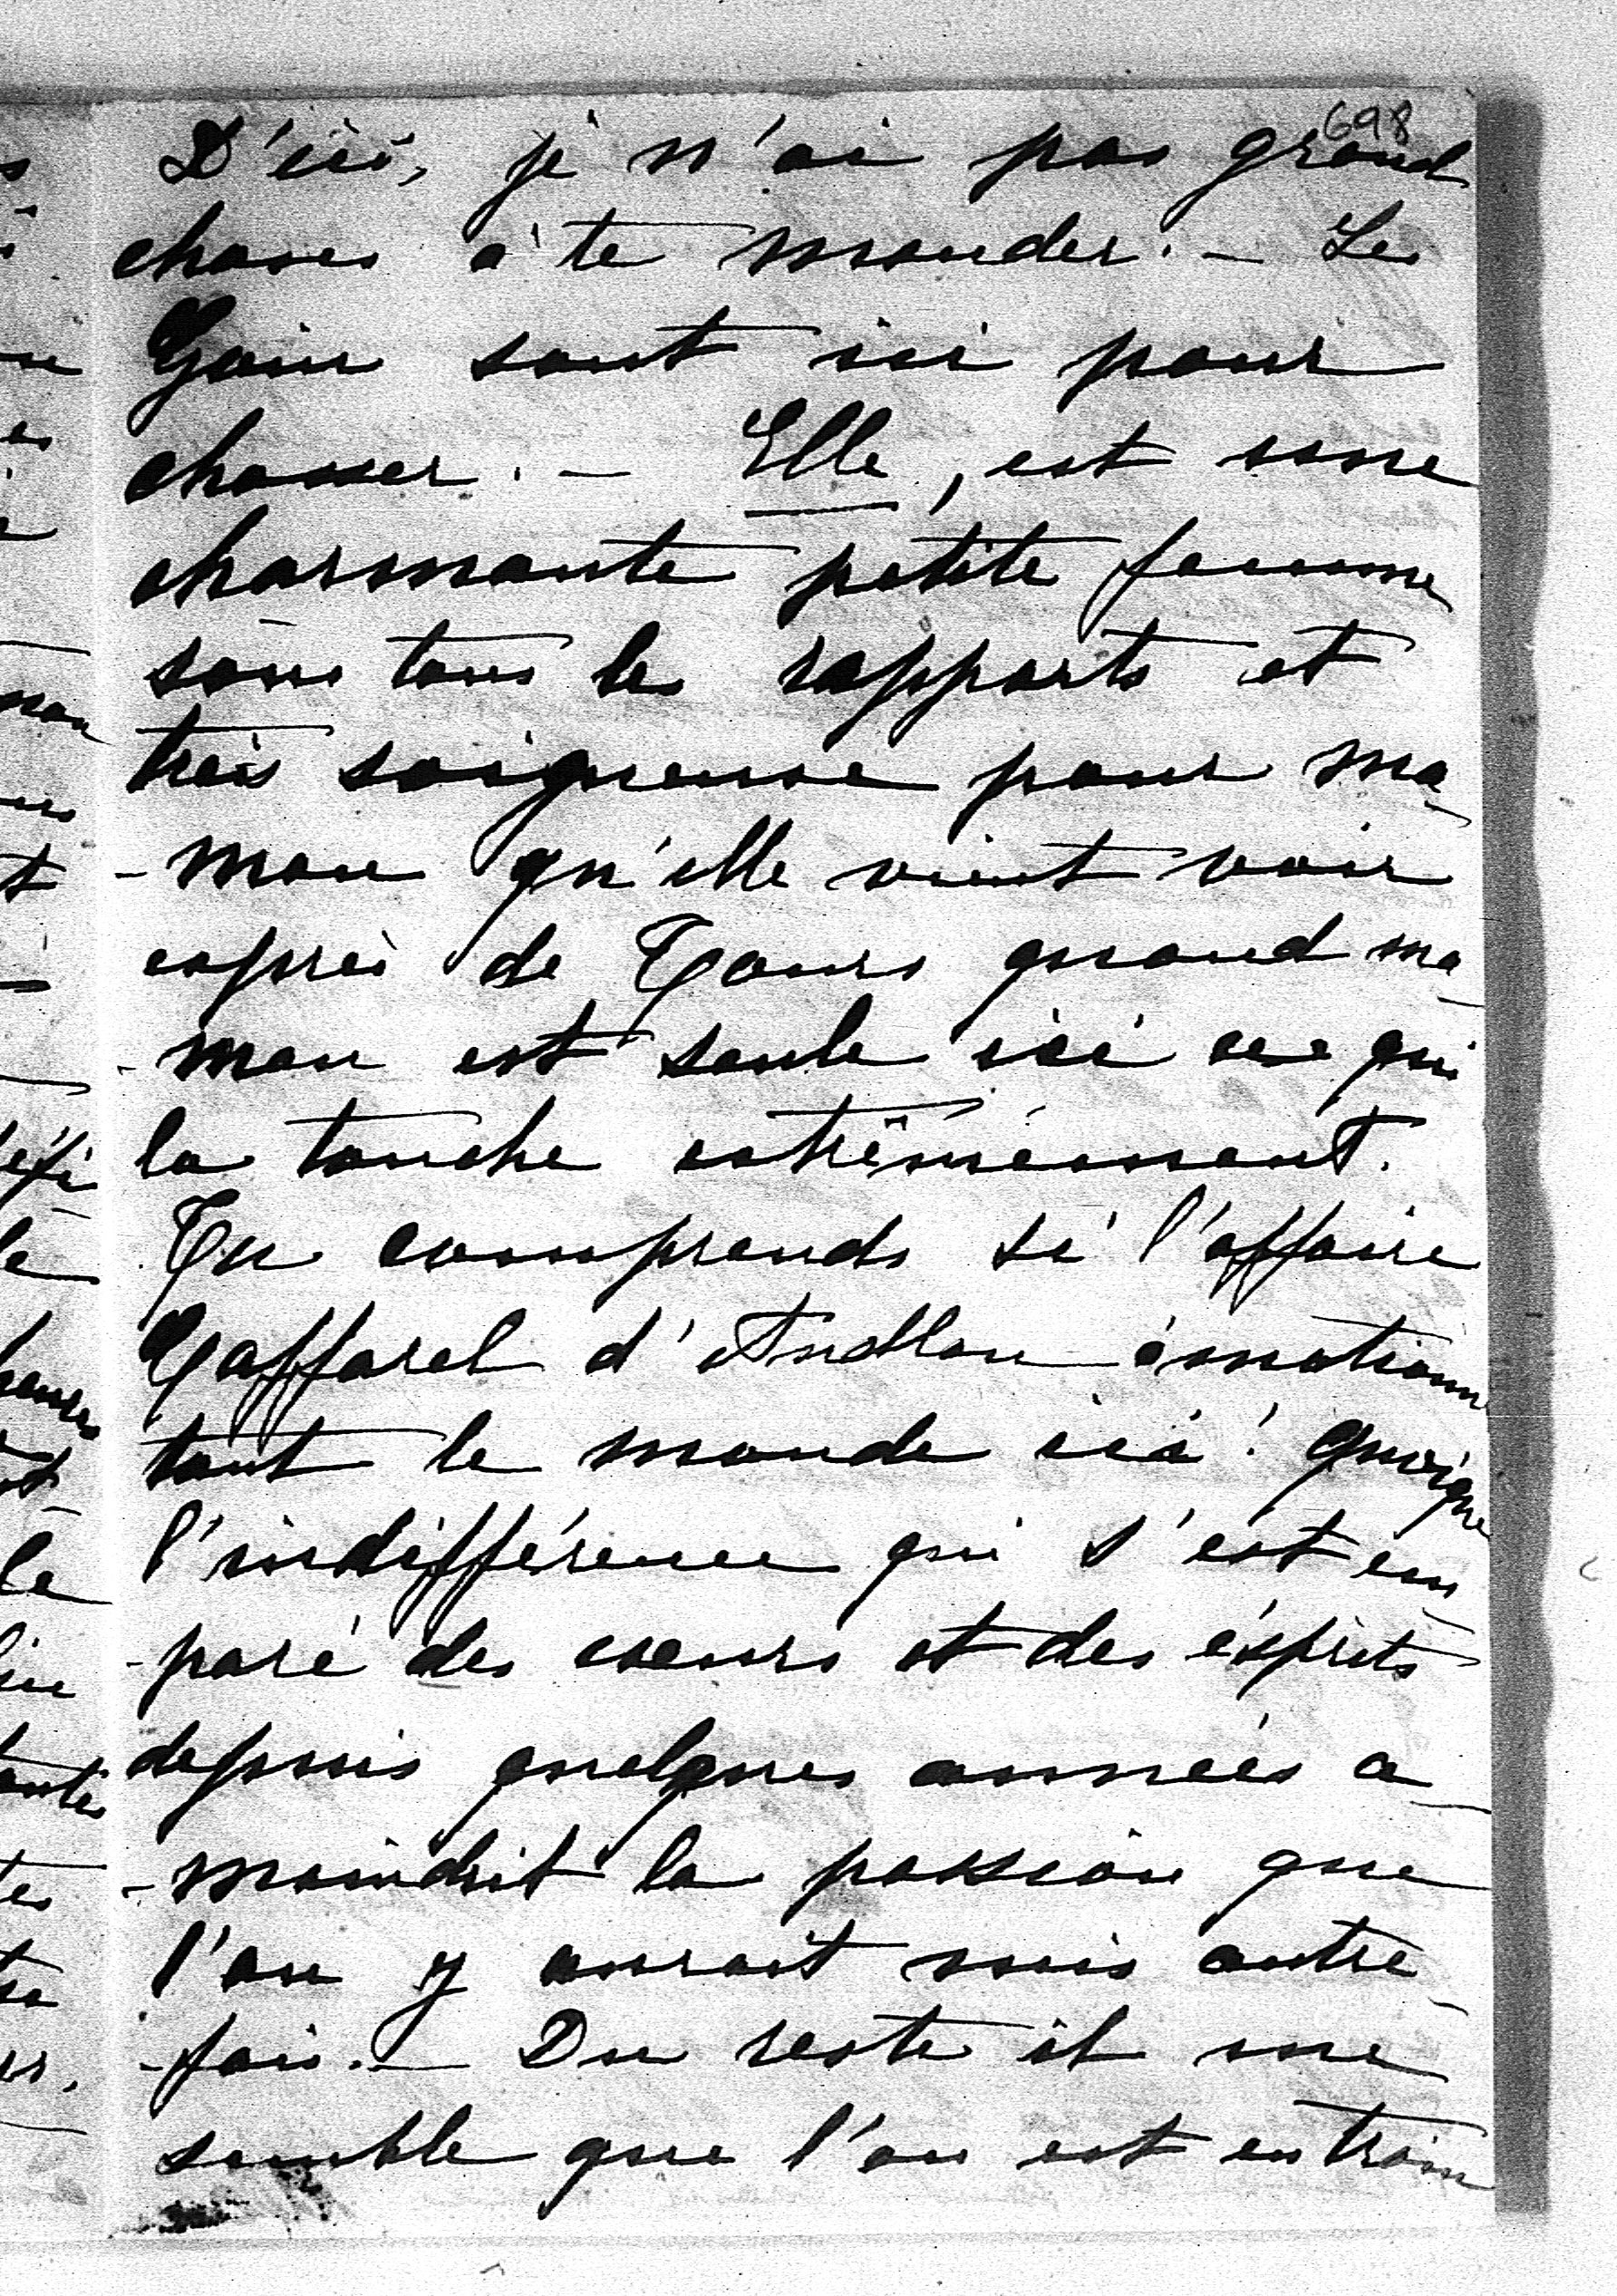 698
D'ici, je n'ai pas grand
choses à te mander. — Les
sont ici pour
chasser. — Elle, est une
charmante petite femme
sous tous les rapports et
très soigneuse pour ma-
-man qu'elle vient voir
exprès de Tours quand ma-
-man est seule ici ce qui
la touche extrêmement.
Tu comprends si l'affaire
Gaffarel d'Andlau émotionne
tout le monde ici! quoique
l'indifférence qui s'est em-
-paré des cœurs et des esprits
depuis quelques années a-
-moindrit la passion que
l'on y aurait mis autre-
-fois. — Du reste il me
semble que l'on est en train